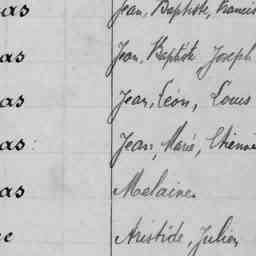 as Jean, Baptiste, Francis
as Jean, Baptiste Joseph
as Jean, Léon, Louis
as: Jean, Marie, Etienne
as Melaine
e Aristide, Julien